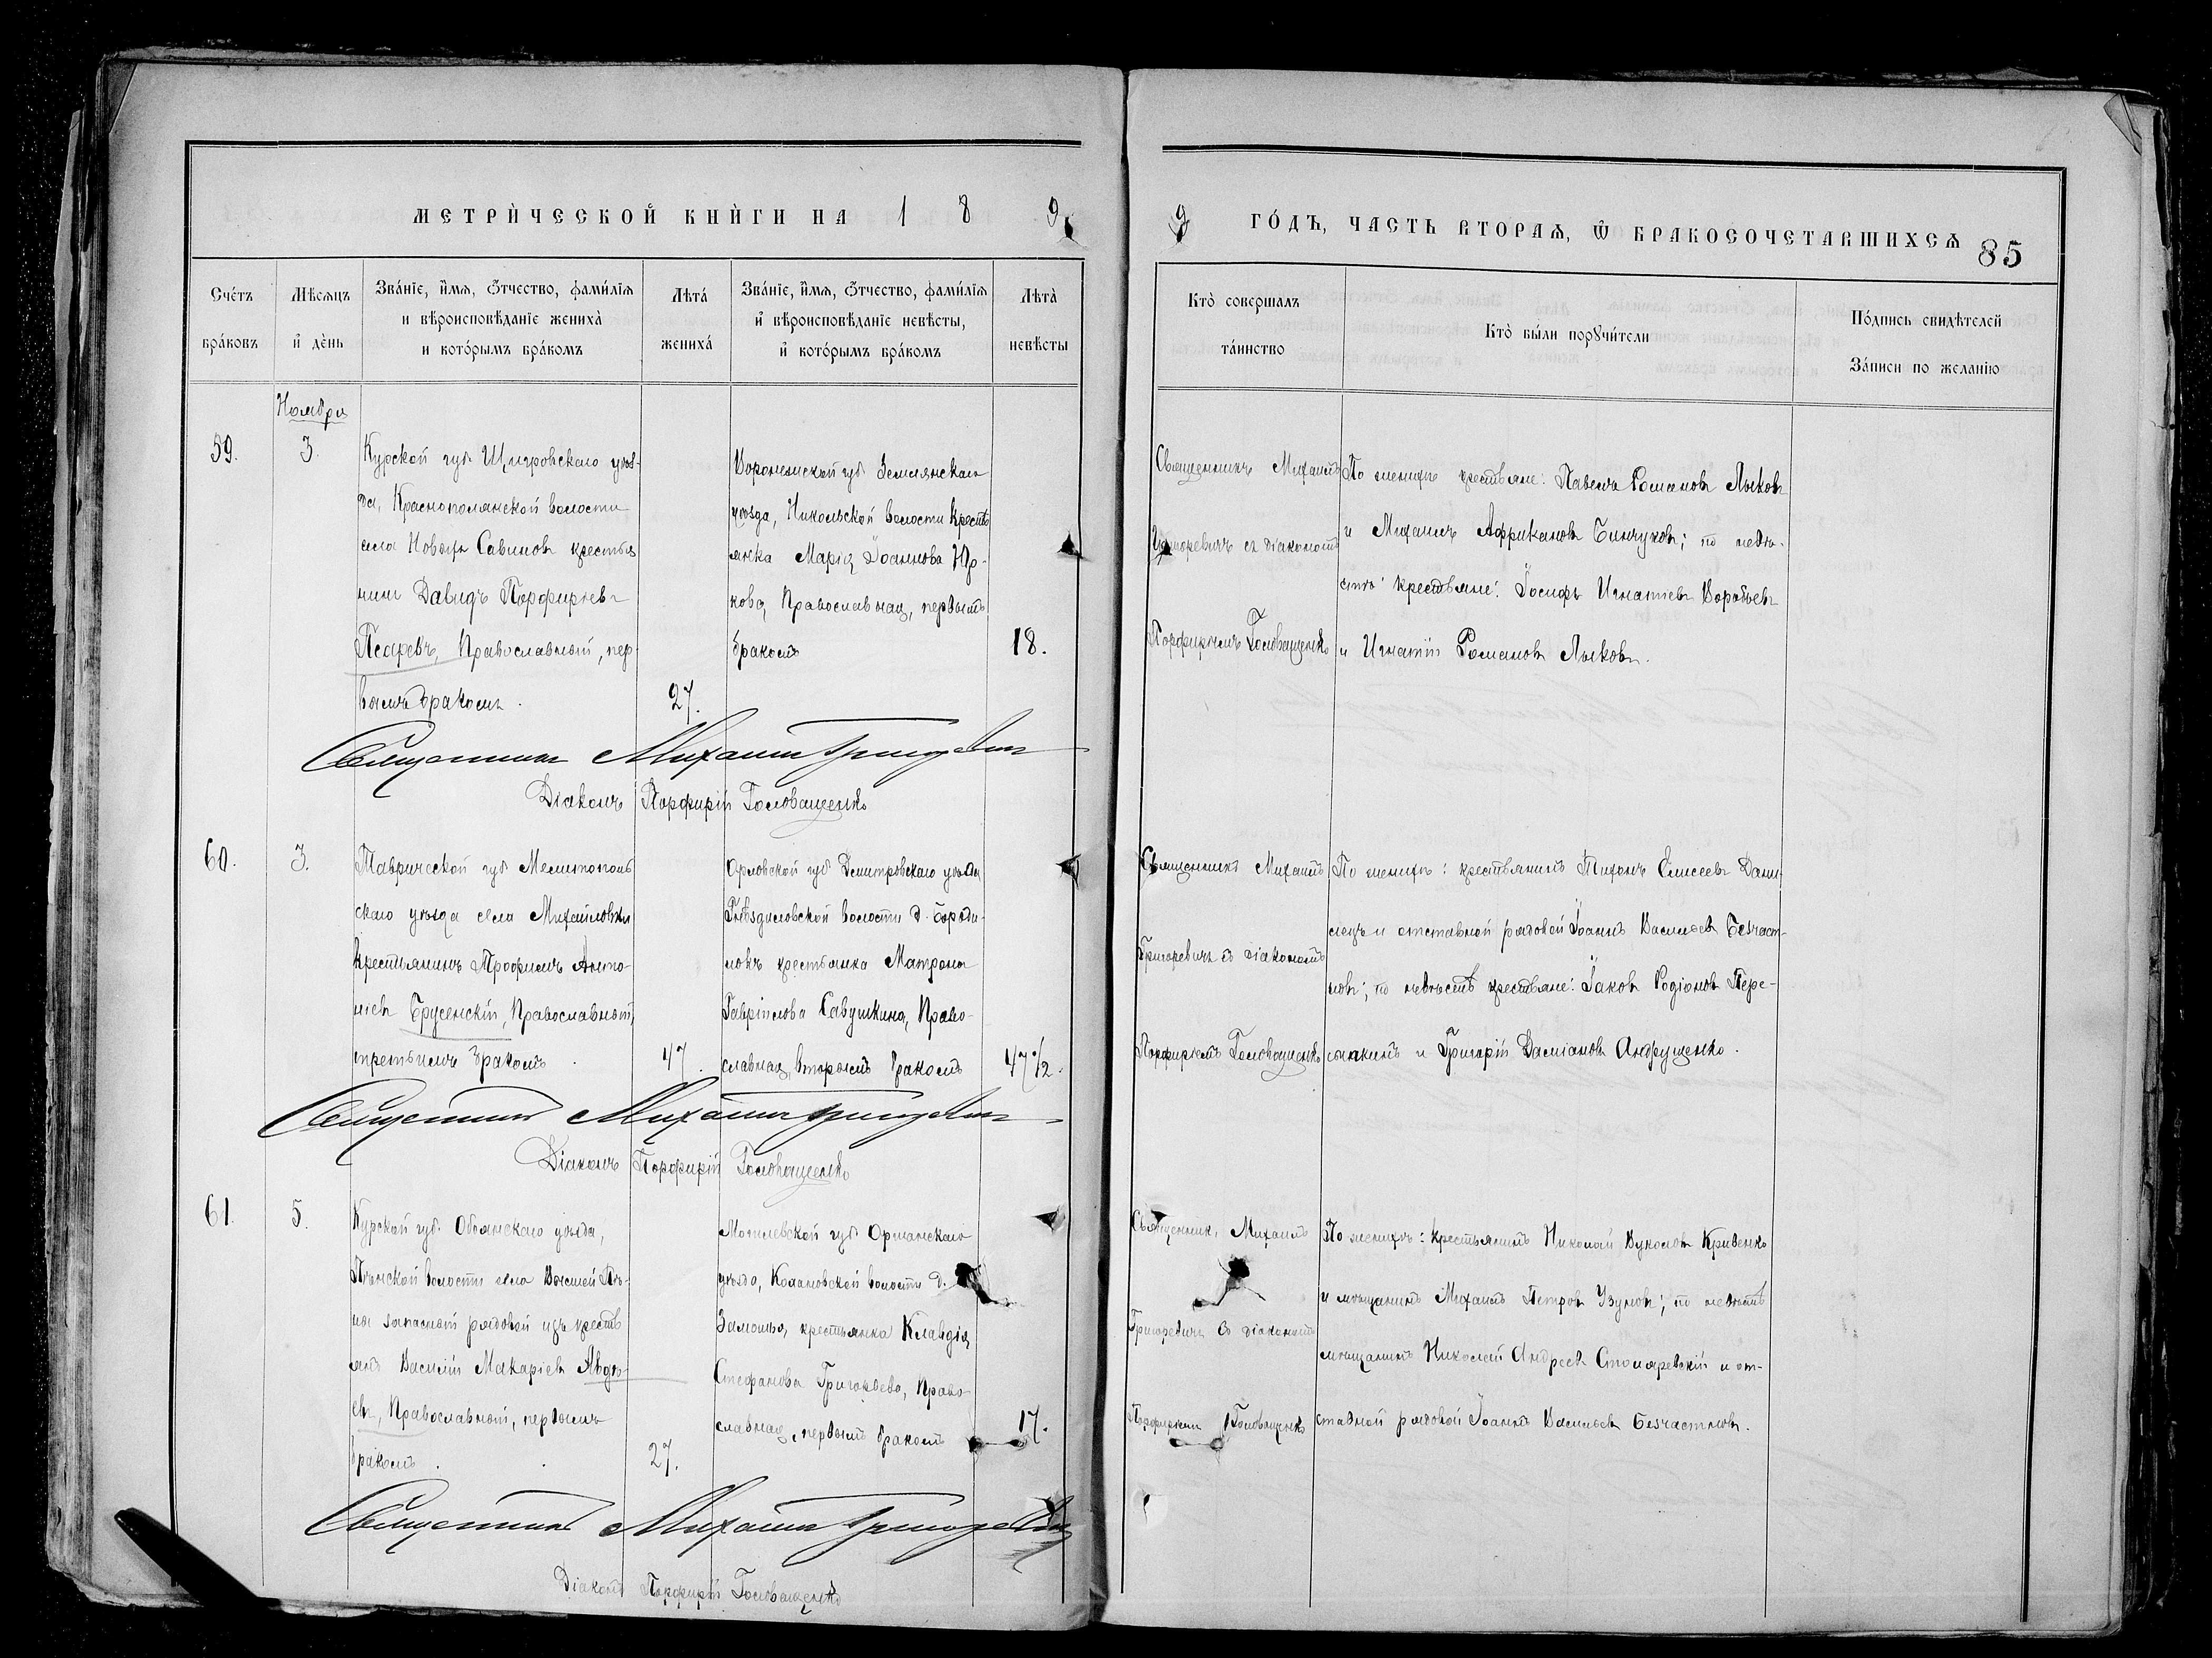 МЕТРИ́ЧЕСКОЙ КНИ́ГИ НА 1 8 9
9 ГО́ДЪ, ЧАСТЬ ВТОРАѦ, Ѿ БРАКОСОЧЕТАВШИХСѦ 85
Сче́тъ бра́ковъ
Мѣсѧцъ и҆ де́нь
Зва́нїе, и҆́мѧ, ѻ҆́тчество, фами́лїѧ и вѣроисповѣ́данїе жениха̀ и кото́рымъ бра́комъ
Лѣта́ жениха́
Зва́нїе, и҆́мѧ, ѻ҆́тчество, фами́лїѧ и҆ вѣроисповѣ́данїе невѣ́сты, и҆ кото́рымъ бра́комъ
Лѣта̀ невѣ́сты
Кто̀ соверша́лъ та́инство
Кто̀ бы́ли порꙋчи́тели
По́дпись свидѣ́телей За́писи по жела́нїю
Ноября
59.
3.
Курской губ Щигровскаго уѣз-
да, Краснополянской волости
села Новыхъ Савиновъ крестья
нинъ Давидъ Порфиріевъ
Псаревъ, Православный, пер
вымъ бракомъ.
27.
Воронежской губ Землянскаго
уѣзда, Никольской волости Кресть
янка Марія Іоаннова Юр-
кова, Православная, первымъ
бракомъ
18.
Священникъ Михаилъ
Григоревичъ съ діакономъ
Порфиріемъ Головащенко
По женихѣ крестьяне: Павелъ Романовъ Лыковъ
и Михаилъ Африкановъ Бинчуковъ; по невѣ-
стѣ: крестьяне: Іосифъ Игнатіевъ Воробьевъ
и Игнатій Романовъ Лыковъ.
Священникъ Михаилъ Григоревичъ
Діаконъ Порфирій Головащенко
60.
3.
Таврической губ Мелитополь
скаго уѣзда села Михайловки
Крестьянинъ Трофимъ Анто-
ніевъ Брусенскій, Православный,
третьимъ бракомъ.
47.
Орловской губ Дмитровскаго уѣзда
Гнѣздиловской волости д. Бороди-
новъ крестьянка Матрона
Гавріилова Савушкина, Право-
славная, вторымъ бракомъ
47½.
Священникъ Михаилъ
Григоревичъ съ діакономъ
Порфиріемъ Головащенко
По женихѣ: крестьянинъ Тихонъ Елисеевъ Дани-
лецъ и отставной рядовой Іоаннъ Васильевъ Безчаст-
новъ; по невѣстѣ крестьяне: Іаковъ Родіоновъ Пере-
и Григорій Даміановъ Андрущенко.
Священникъ Михаилъ Григоревичъ
Діаконъ Порфирій Головащенко
61.
5.
Курской губ. Обоянскаго уѣзда,
Пѣнской волости села Высшей Пѣ-
ны запасный рядовой изъ кресть
янъ Василій Макаріевъ Авдѣ-
евъ, Православный, первымъ
бракомъ.
27.
Могилевской губ Оршанскаго
уѣзда, Кохановской волости д.
Замошья, крестьянка Клавдія
Стефанова Григорьева, Право-
славная, первымъ бракомъ
17.
Священникъ Михаилъ
Григоревичъ съ діакономъ
Порфиріемъ Головащенко
По женихѣ: крестьянинъ Николай Вуколовъ Кривенко
и мѣщанинъ Михаилъ Петровъ Узуновъ; по невѣстѣ
мѣщанинъ Николай Андреевъ Столяревскій и от-
ставной рядовой Іоаннъ Васильевъ Безчастновъ.
Священникъ Михаилъ Григоревичъ
Діаконъ Порфирій Головащенко